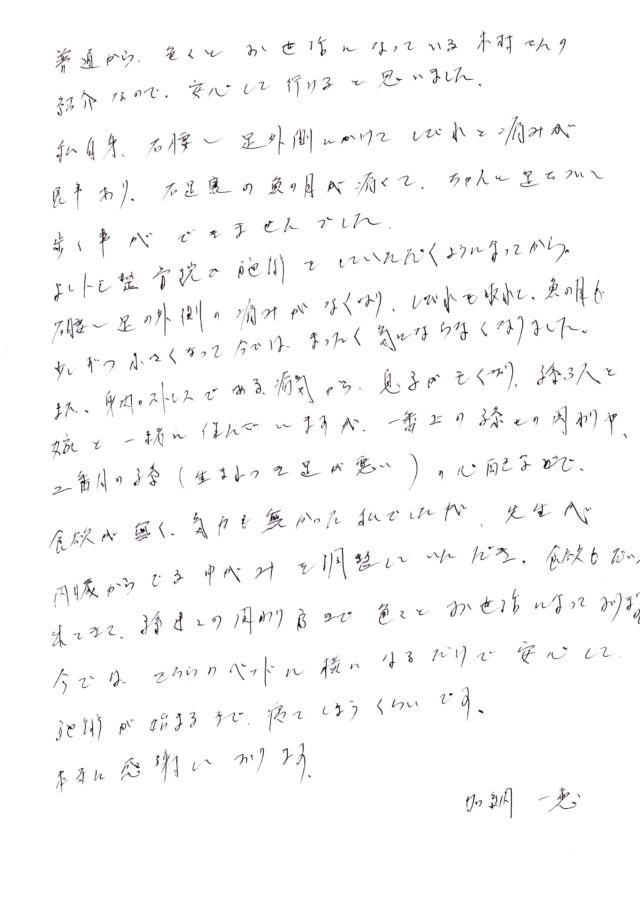 普通から、色々と お世話になっている 木村さんの
紹介なので、安心して行けると思いました。
私自身、右腰〜足外側にかけて しびれと痛みが
あり、右足裏の魚の目が痛くて、ちゃんと足をついて
歩く事ができませんでした。
よしトモ整骨院で施術をしていただくようになってから、
右腰〜足の外側の痛みがなくなり、しびれも取れて、魚の目も
少しずつ小さくなって今では、まったく気にならなくなりました。
また、ストレスである、病気から、息子が亡くなり、孫3人と
嫁と一緒に住んでいますが、一番上の孫との関わりや、
二番目の孫(生まれつき足が悪い)の心配などで、
食欲が無く、気力も無かった私でしたが、先生が
内臓からでるゆがみを調整していただき、食欲も
出てきて、孫達との関わり方まで色々とお世話になっております
今では、こちらのベッドに横になるだけで安心して、
施術が始まるまで、寝てしまうくらいです。
本当に感謝しております。
一恵